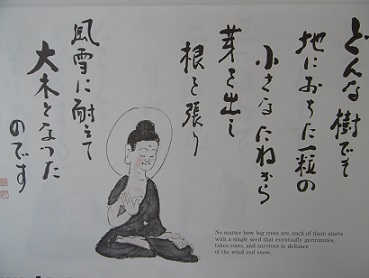 どんな樹でも
地におちた一粒の
小さなたねから
芽を出し
根を張り
風雪に耐えて
大木となった
のです
No matter how big trees are, each of them starts
with a single seed that eventually germinates,
takes roots, and survives in defiance
of the wind and snow.